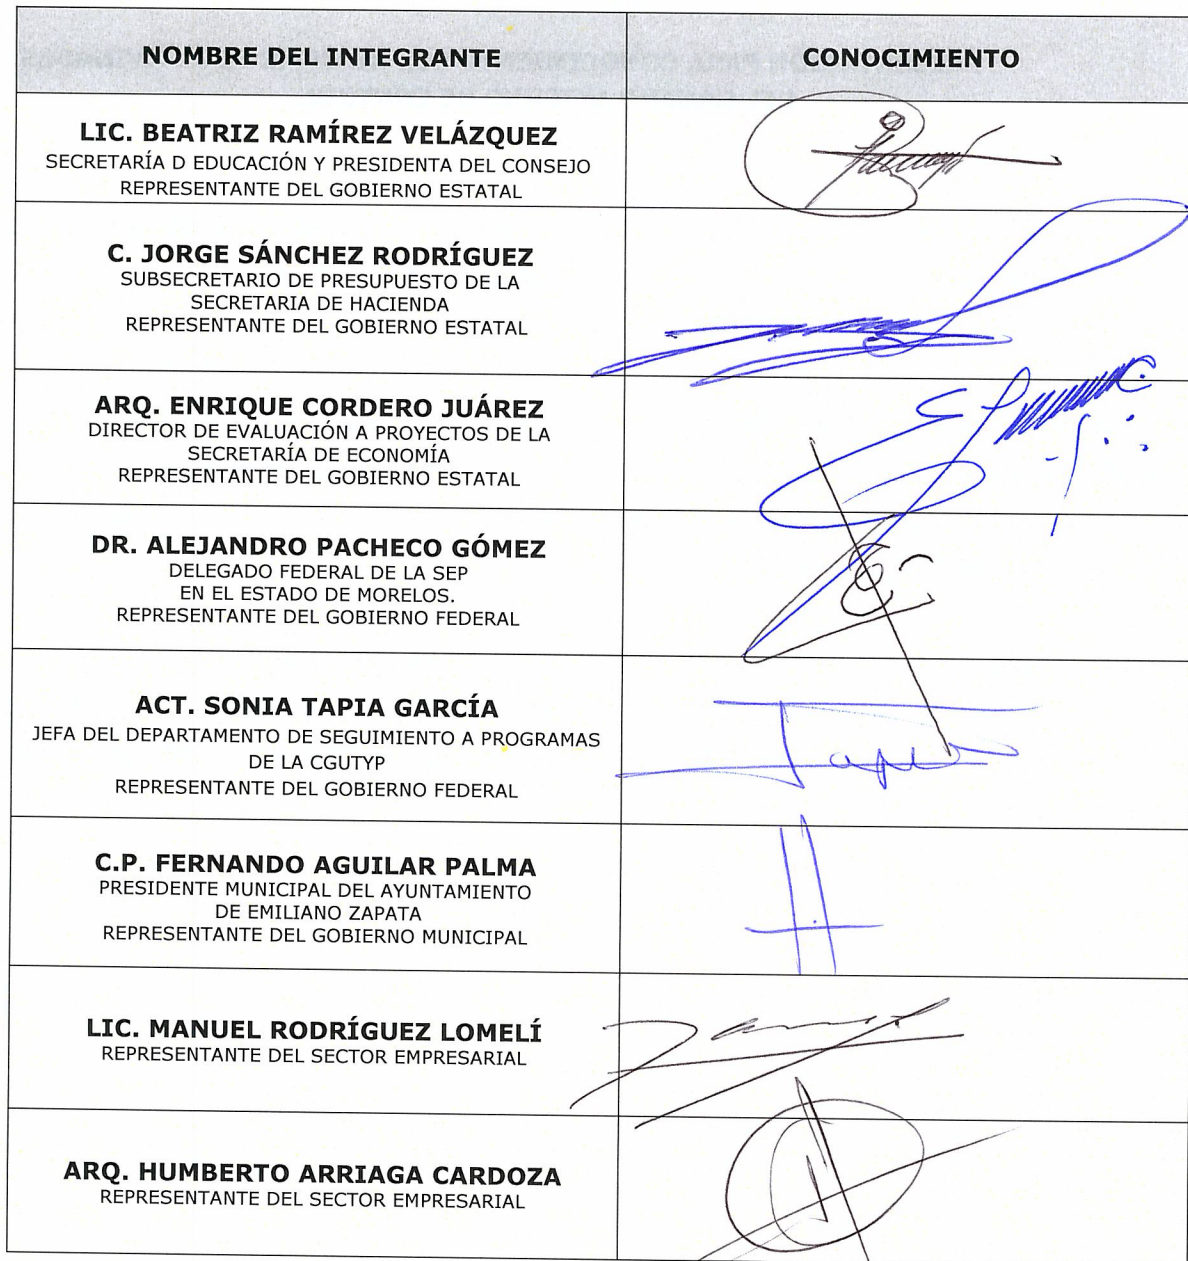 NOMBRE DEL INTEGRANTE
CONOCIMIENTO
LIC. BEATRIZ RAMÍREZ VELÁZQUEZ
SECRETARÍA D EDUCACIÓN Y PRESIDENTA DEL CONSEJO
REPRESENTANTE DEL GOBIERNO ESTATAL
C. JORGE SÁNCHEZ RODRÍGUEZ
SUBSECRETARIO DE PRESUPUESTO DE LA
SECRETARIA DE HACIENDA
REPRESENTANTE DEL GOBIERNO ESTATAL
ARQ. ENRIQUE CORDERO JUÁREZ
DIRECTOR DE EVALUACIÓN A PROYECTOS DE LA
SECRETARÍA DE ECONOMÍA
REPRESENTANTE DEL GOBIERNO ESTATAL
DR. ALEJANDRO PACHECO GÓMEZ
DELEGADO FEDERAL DE LA SEP
EN EL ESTADO DE MORELOS.
REPRESENTANTE DEL GOBIERNO FEDERAL
ACT. SONIA TAPIA GARCÍA
JEFA DEL DEPARTAMENTO DE SEGUIMIENTO A PROGRAMAS
DE LA CGUTYP
REPRESENTANTE DEL GOBIERNO FEDERAL
C.P. FERNANDO AGUILAR PALMA
PRESIDENTE MUNICIPAL DEL AYUNTAMIENTO
DE EMILIANO ZAPATA
REPRESENTANTE DEL GOBIERNO MUNICIPAL
LIC. MANUEL RODRÍGUEZ LOMELÍ
REPRESENTANTE DEL SECTOR EMPRESARIAL
ARQ. HUMBERTO ARRIAGA CARDOZA
REPRESENTANTE DEL SECTOR EMPRESARIAL